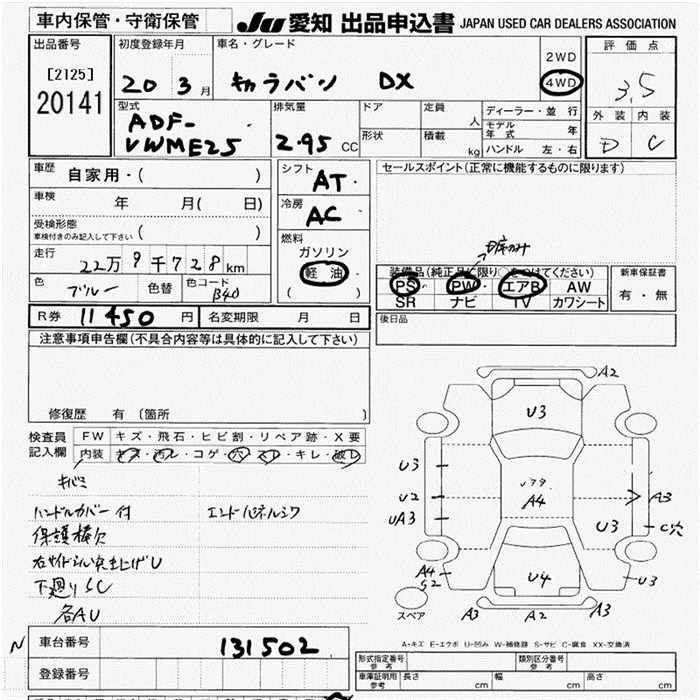 車内保管・守衛保管
JU 愛知 出品申込書 JAPAN USED CAR DEALERS ASSOCIATION
出品番号
[2125]
20141
初度登録年月
20 3月
車名・グレード
キャラバン DX
2WD
4WD
評価点
3.5
外装 内装
D C
型式
ADF-
VWME25
排気量
2.95 CC
ドア
形状
定員 人
積載 kg
ディーラー・並行
モデル年式 年
ハンドル 左・右
車歴 自家用・( )
車検 年 月( 日)
受検形態
車検付きのみ記入して下さい ( )
走行 22万9千728km
色 ブルー 色替 色コード B40
シフト
AT
冷房
AC
燃料
ガソリン
軽油
( )
セールスポイント(正常に機能するものに限ります)
装備品(純正品に限り○をつけてください)
PS・PW・エアB AW
SR ナビ TV カワシート
新車保証書
有・無
R券 11450円 名変期限 月 日
後日品
注意事項申告欄(不具合内容等は具体的に記入して下さい)
修復歴 有 (箇所 )
検査員記入欄
FW キズ・飛石・ヒビ割・リペア跡・X要
内装 キズ・汚レ・コゲ・穴・スレ・キレ・破レ
キバミ
ハンドルカバー付 エンドパネルシワ
下廻りSC
各AU
A2
U3
U3
U2
UA3
A4
A3
U3
C穴
A4
S2
U4
U3
スペア
A3 A2 A3
A-キズ E-エクボ U-凹み W-補修跡 S-サビ C-腐食 XX-交換済
N
車台番号 131502
登録番号
形式指定番号 参考
類別区分番号 参考
車庫証明用 参考 長さ cm 幅 cm 高さ cm